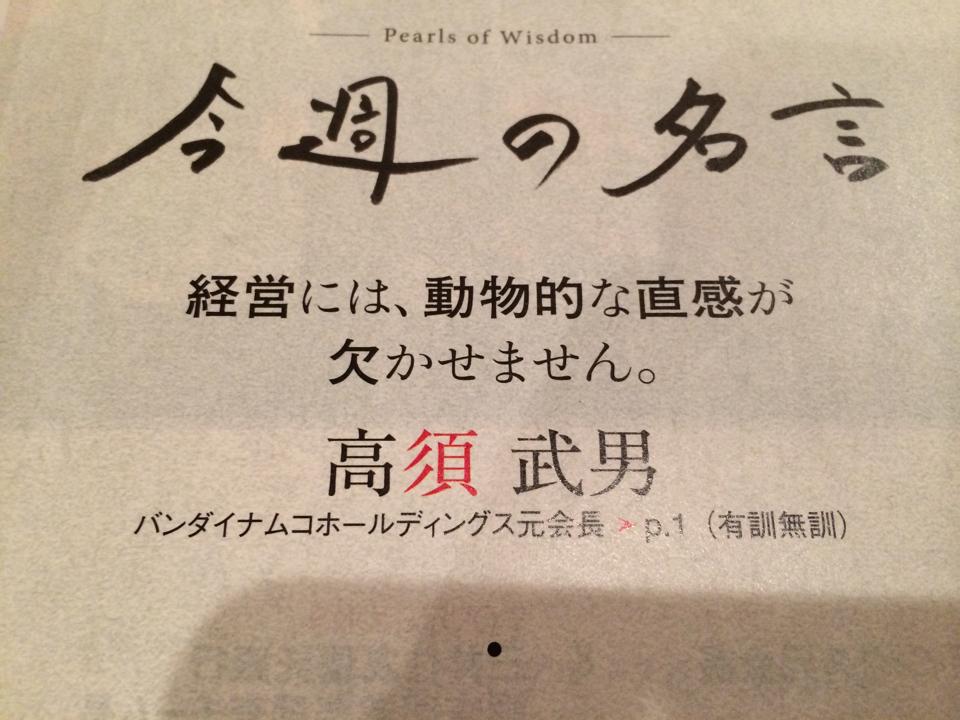 Pearls of Wisdom
今週の名言
経営には、動物的な直感が
欠かせません。
高須 武男
バンダイナムコホールディングス元会長 > p.1（有訓無訓）